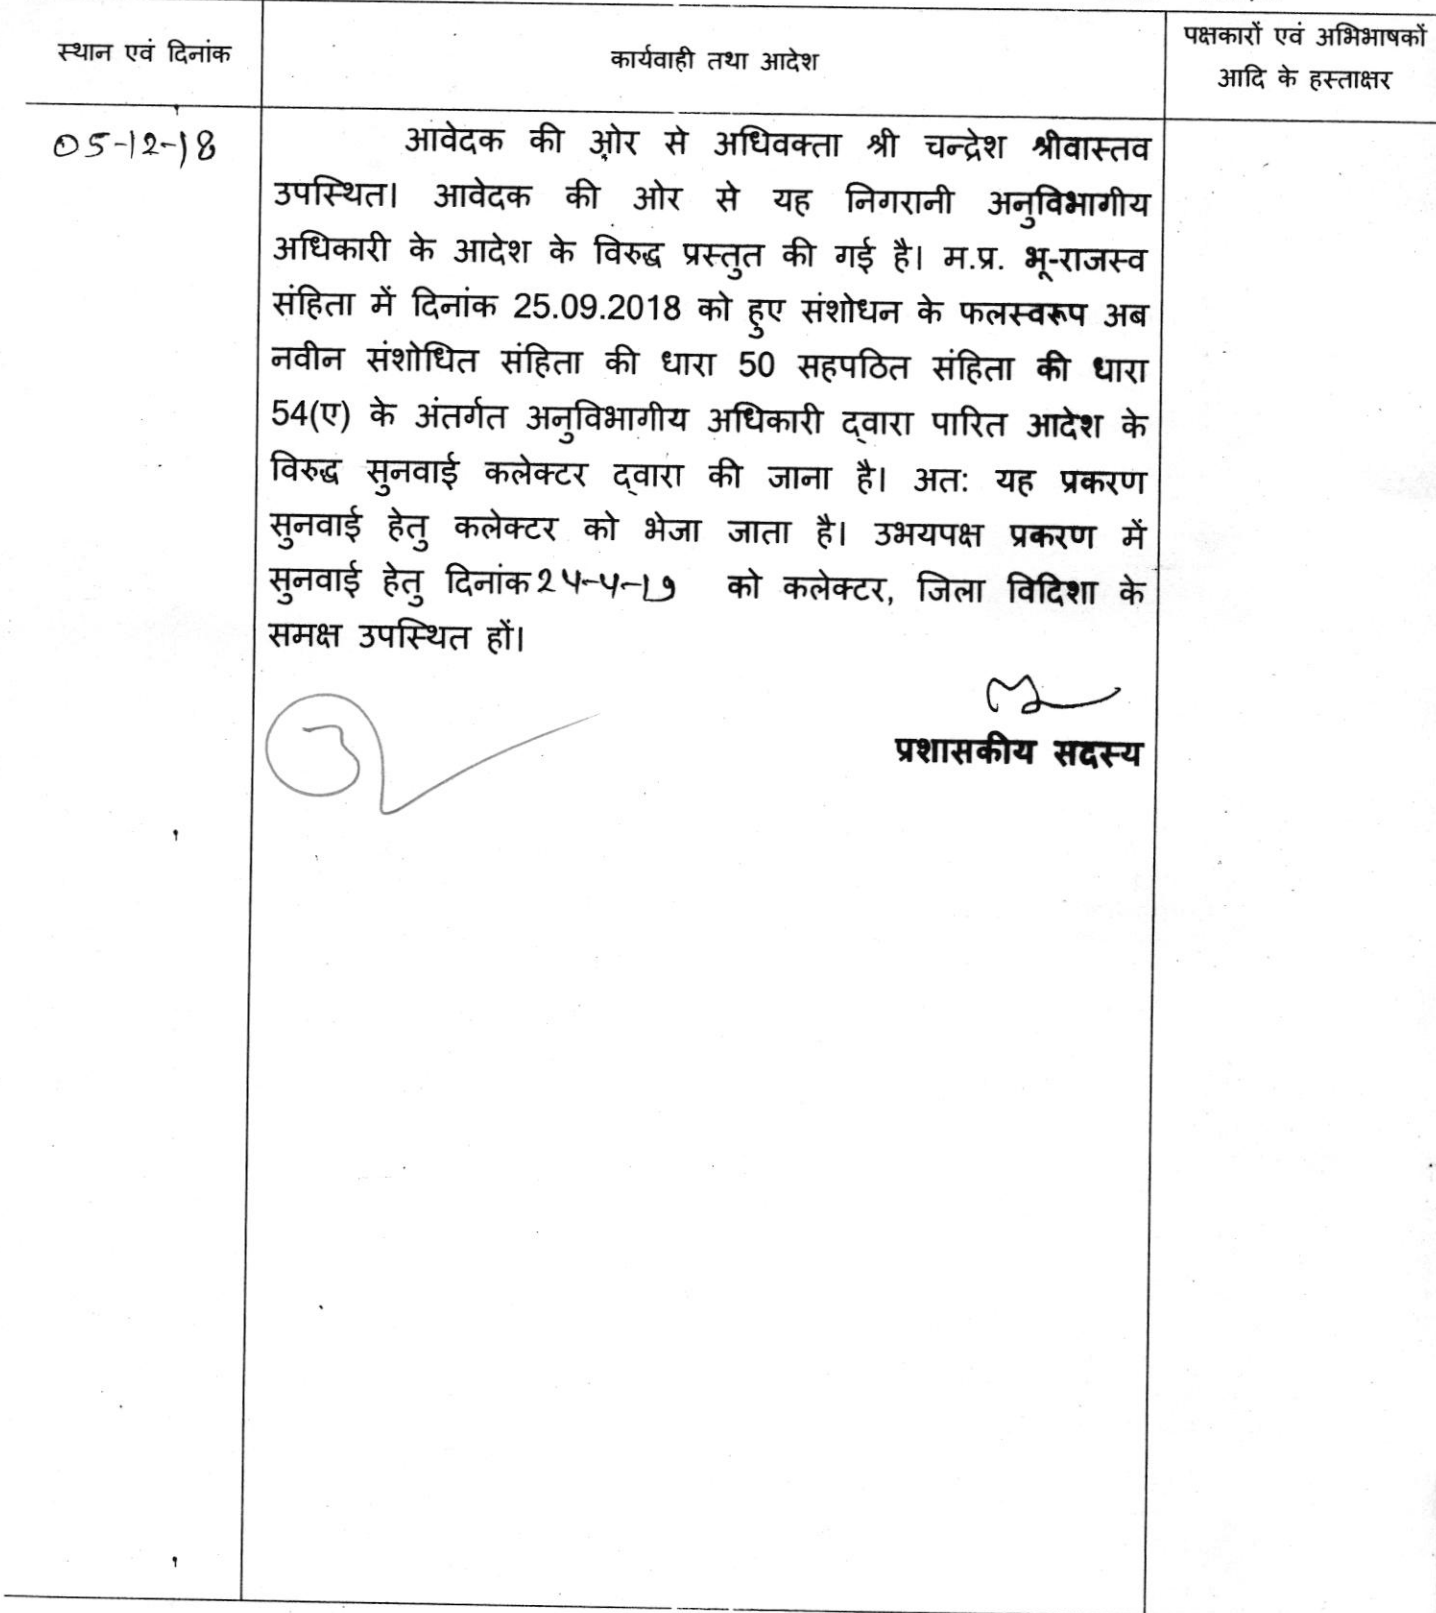 स्थान एवं दिनांक
कार्यवाही तथा आदेश
पक्षकारों एवं अभिभाषकों
आदि के हस्ताक्षर
05-12-18
आवेदक की ओर से अधिवक्ता श्री चन्द्रेश श्रीवास्तव
उपस्थित। आवेदक की ओर से यह निगरानी अनुविभागीय
अधिकारी के आदेश के विरुद्ध प्रस्तुत की गई है। म.प्र. भू-राजस्व
संहिता में दिनांक 25.09.2018 को हुए संशोधन के फलस्वरूप अब
नवीन संशोधित संहिता की धारा 50 सहपठित संहिता की धारा
54(ए) के अंतर्गत अनुविभागीय अधिकारी द्वारा पारित आदेश के
विरुद्ध सुनवाई कलेक्टर द्वारा की जाना है। अत: यह प्रकरण
सुनवाई हेतु कलेक्टर को भेजा जाता है। उभयपक्ष प्रकरण में
सुनवाई हेतु दिनांक को कलेक्टर, जिला विदिशा के
समक्ष उपस्थित हों।
प्रशासकीय सदस्य